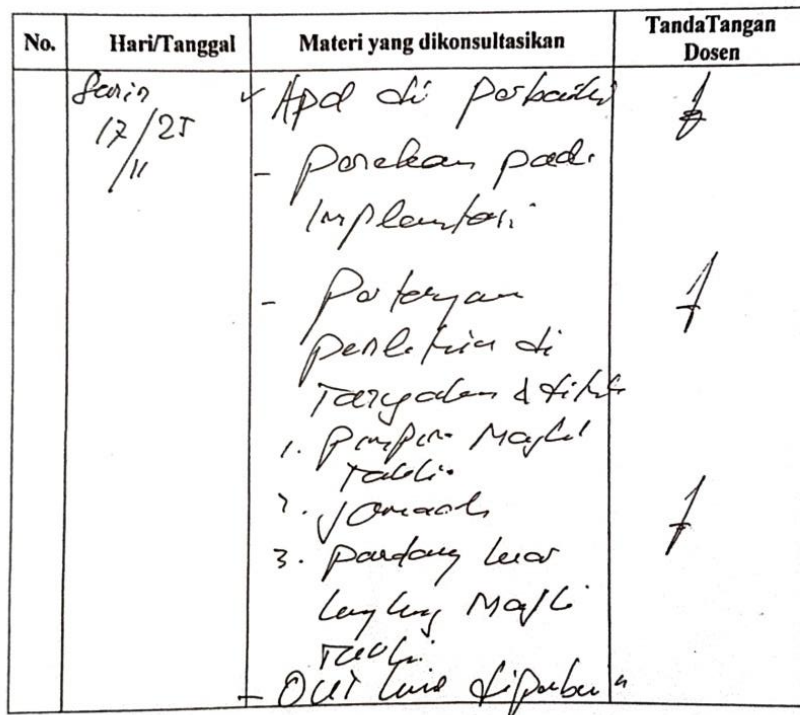 No. Hari/Tanggal Materi yang dikonsultasikan TandaTangan Dosen
Senin
17/25
/11
Apd di perbaiki
- Penekanan pada
Implementasi
- Pertanyaan
penelitian di
Tanyakan &
1. Pimpin Majlis
Taklim
2. Jamaah
3. pandang luar
Majlis
Taklim
- OUT line diperbau"